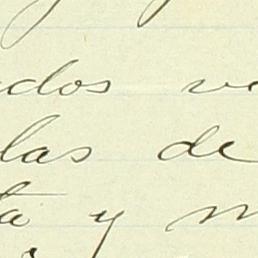 ados ve
las de
ta y m